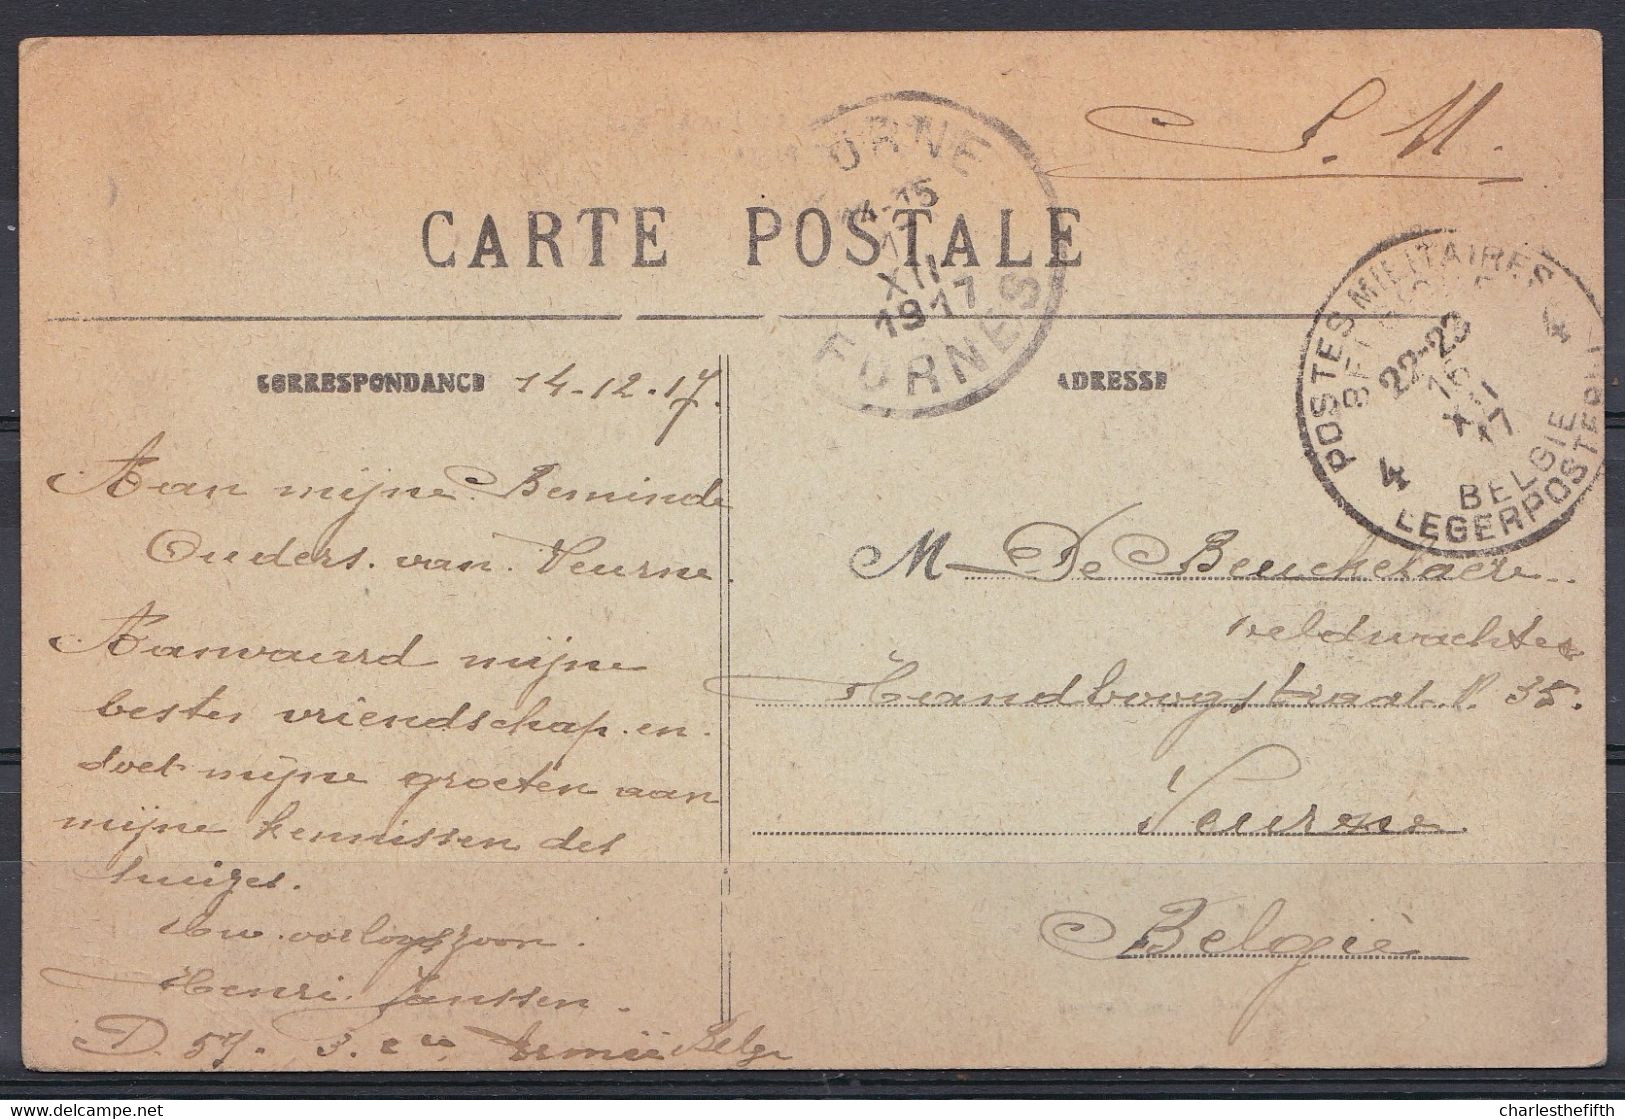 S. M.
CARTE POSTALE
URNE
14-15
XII
1917
FURNES
POSTES MILITAIRES
BELGIQUE
22-23
15
XII
17
4 4
BELGIE
LEGERPOSTERIJ
CORRESPONDANCE 14-12-17.
ADRESSE
Aan mijne Beminde
Ouders. van. Veurne.
Aanvaard mijne
beste vriendschap. en.
doet mijne groeten aan
mijne kennissen des
huizes.
Uw. oorlogszoon.
Henri. Janssen.
D. 57. 3. Armeé Belge
M De Beuckelaere.
veldwachter
Handboogstraat N. 35.
Veurne.
Belgiè
delcampe.net
charlesthefifth